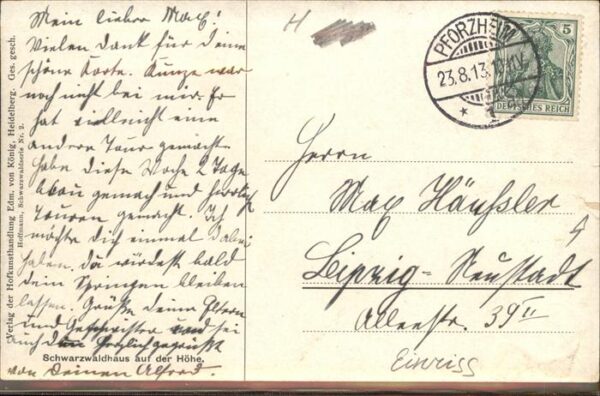 Mein lieber Max!
Vielen Dank für deine
schöne Karte. Kunze war
noch nicht bei mir. Er
hat vielleicht eine
andere Tour gemacht.
Habe diese Woche 2 Tage
blau gemacht und herrliche
Touren gemacht. Ich
möchte dich einmal dabei
haben. da würdest bald
dein Springen bleiben
lassen. Grüße deine Eltern
und Geschwister und sei
auch herzlich gegrüßt
von Deinem Alfred.
Schwarzwaldhaus auf der Höhe.
Verlag der Hofkunsthandlung Edm. von König, Heidelberg. Ges. gesch.
Hoffmann, Schwarzwaldserie Nr. 2.
H
PFORZHEIM
23.8.13.
* 1
5
DEUTSCHES REICH
Herrn
Max Häußler
Leipzig-Neustadt
Alleestr. 39 II
Einriss